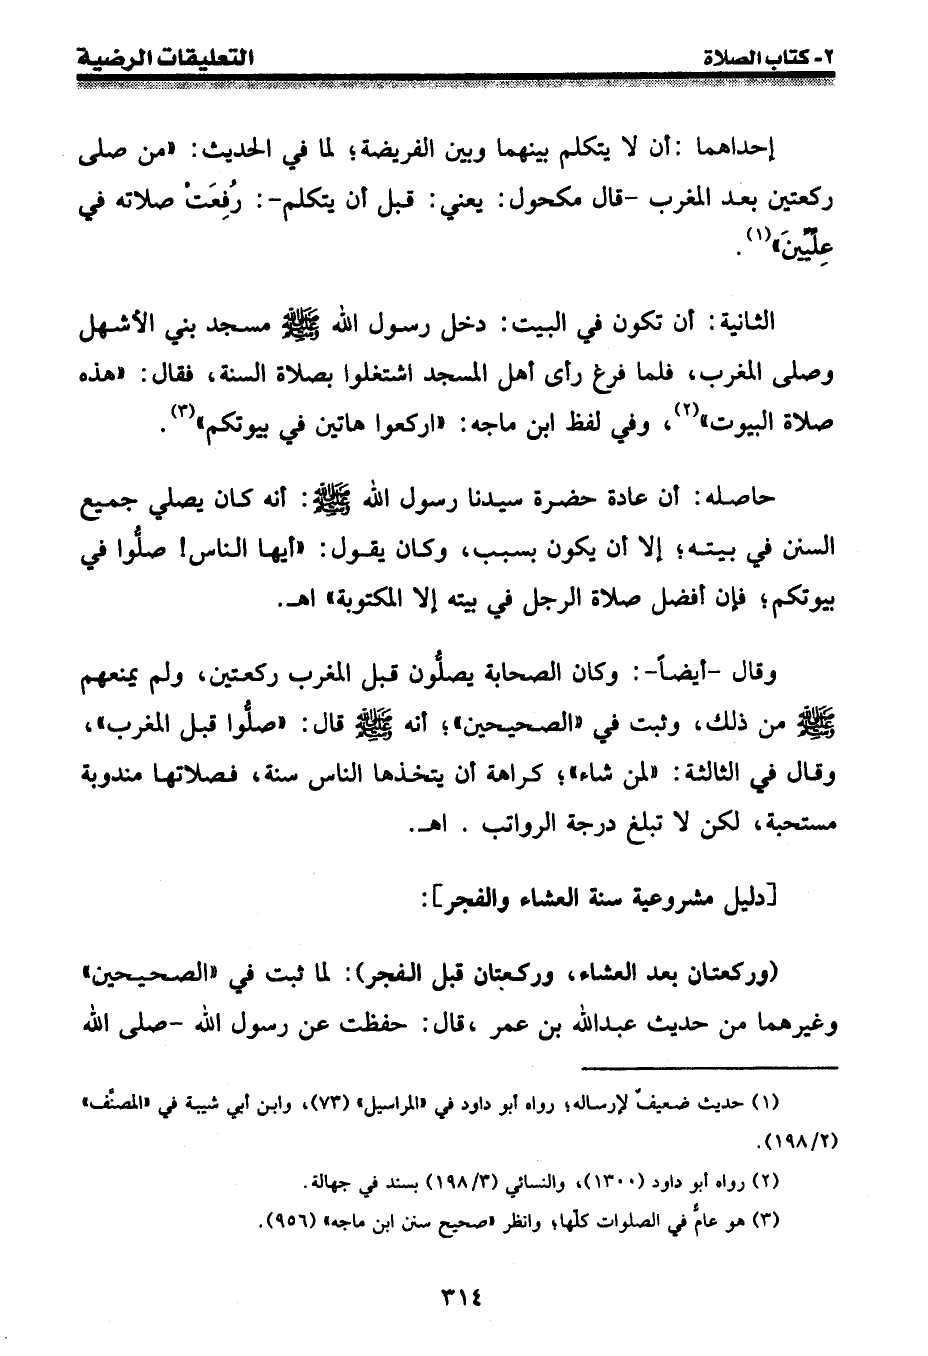 ٢- كتاب الصلاة
التعليقات الرضية
إحداهما :أن لا يتكلم بينهما وبين الفريضة؛ لما في الحديث: «من صلى
ركعتين بعد المغرب -قال مكحول: يعني: قبل أن يتكلم-: رُفِعَتْ صلاته في
عِلِّيِّينَ»(١).
الثانية: أن تكون في البيت: دخل رسول الله ﷺ مسجد بني الأشهل
وصلى المغرب، فلما فرغ رأى أهل المسجد اشتغلوا بصلاة السنة، فقال: «هذه
صلاة البيوت»(٢)، وفي لفظ ابن ماجه: «اركعوا هاتين في بيوتكم»(٣).
حاصله: أن عادة حضرة سيدنا رسول الله ﷺ: أنه كان يصلي جميع
السنن في بيته؛ إلا أن يكون بسبب، وكان يقول: «أيها الناس! صلُّوا في
بيوتكم؛ فإن أفضل صلاة الرجل في بيته إلا المكتوبة» اهـ.
وقال -أيضاً-: وكان الصحابة يصلُّون قبل المغرب ركعتين، ولم يمنعهم
ﷺ من ذلك، وثبت في «الصحيحين»؛ أنه ﷺ قال: «صلُّوا قبل المغرب»،
وقال في الثالثة: «لمن شاء»؛ كراهة أن يتخذها الناس سنة، فصلاتها مندوبة
مستحبة، لكن لا تبلغ درجة الرواتب . اهـ.
[دليل مشروعية سنة العشاء والفجر]:
(وركعتان بعد العشاء، وركعتان قبل الفجر): لما ثبت في «الصحيحين»
وغيرهما من حديث عبدالله بن عمر ،قال: حفظت عن رسول الله -صلى الله
(١) حديث ضعيفٌ لإرساله؛ رواه أبو داود في «المراسيل» (٧٣)، وابن أبي شيبة في «المصنَّف»
(٢/١٩٨).
(٢) رواه أبو داود (١٣٠٠)، والنسائي (٣/١٩٨) بسند في جهالة.
(٣) هو عامٌّ في الصلوات كلّها؛ وانظر «صحيح سنن ابن ماجه» (٩٥٦).
٣١٤